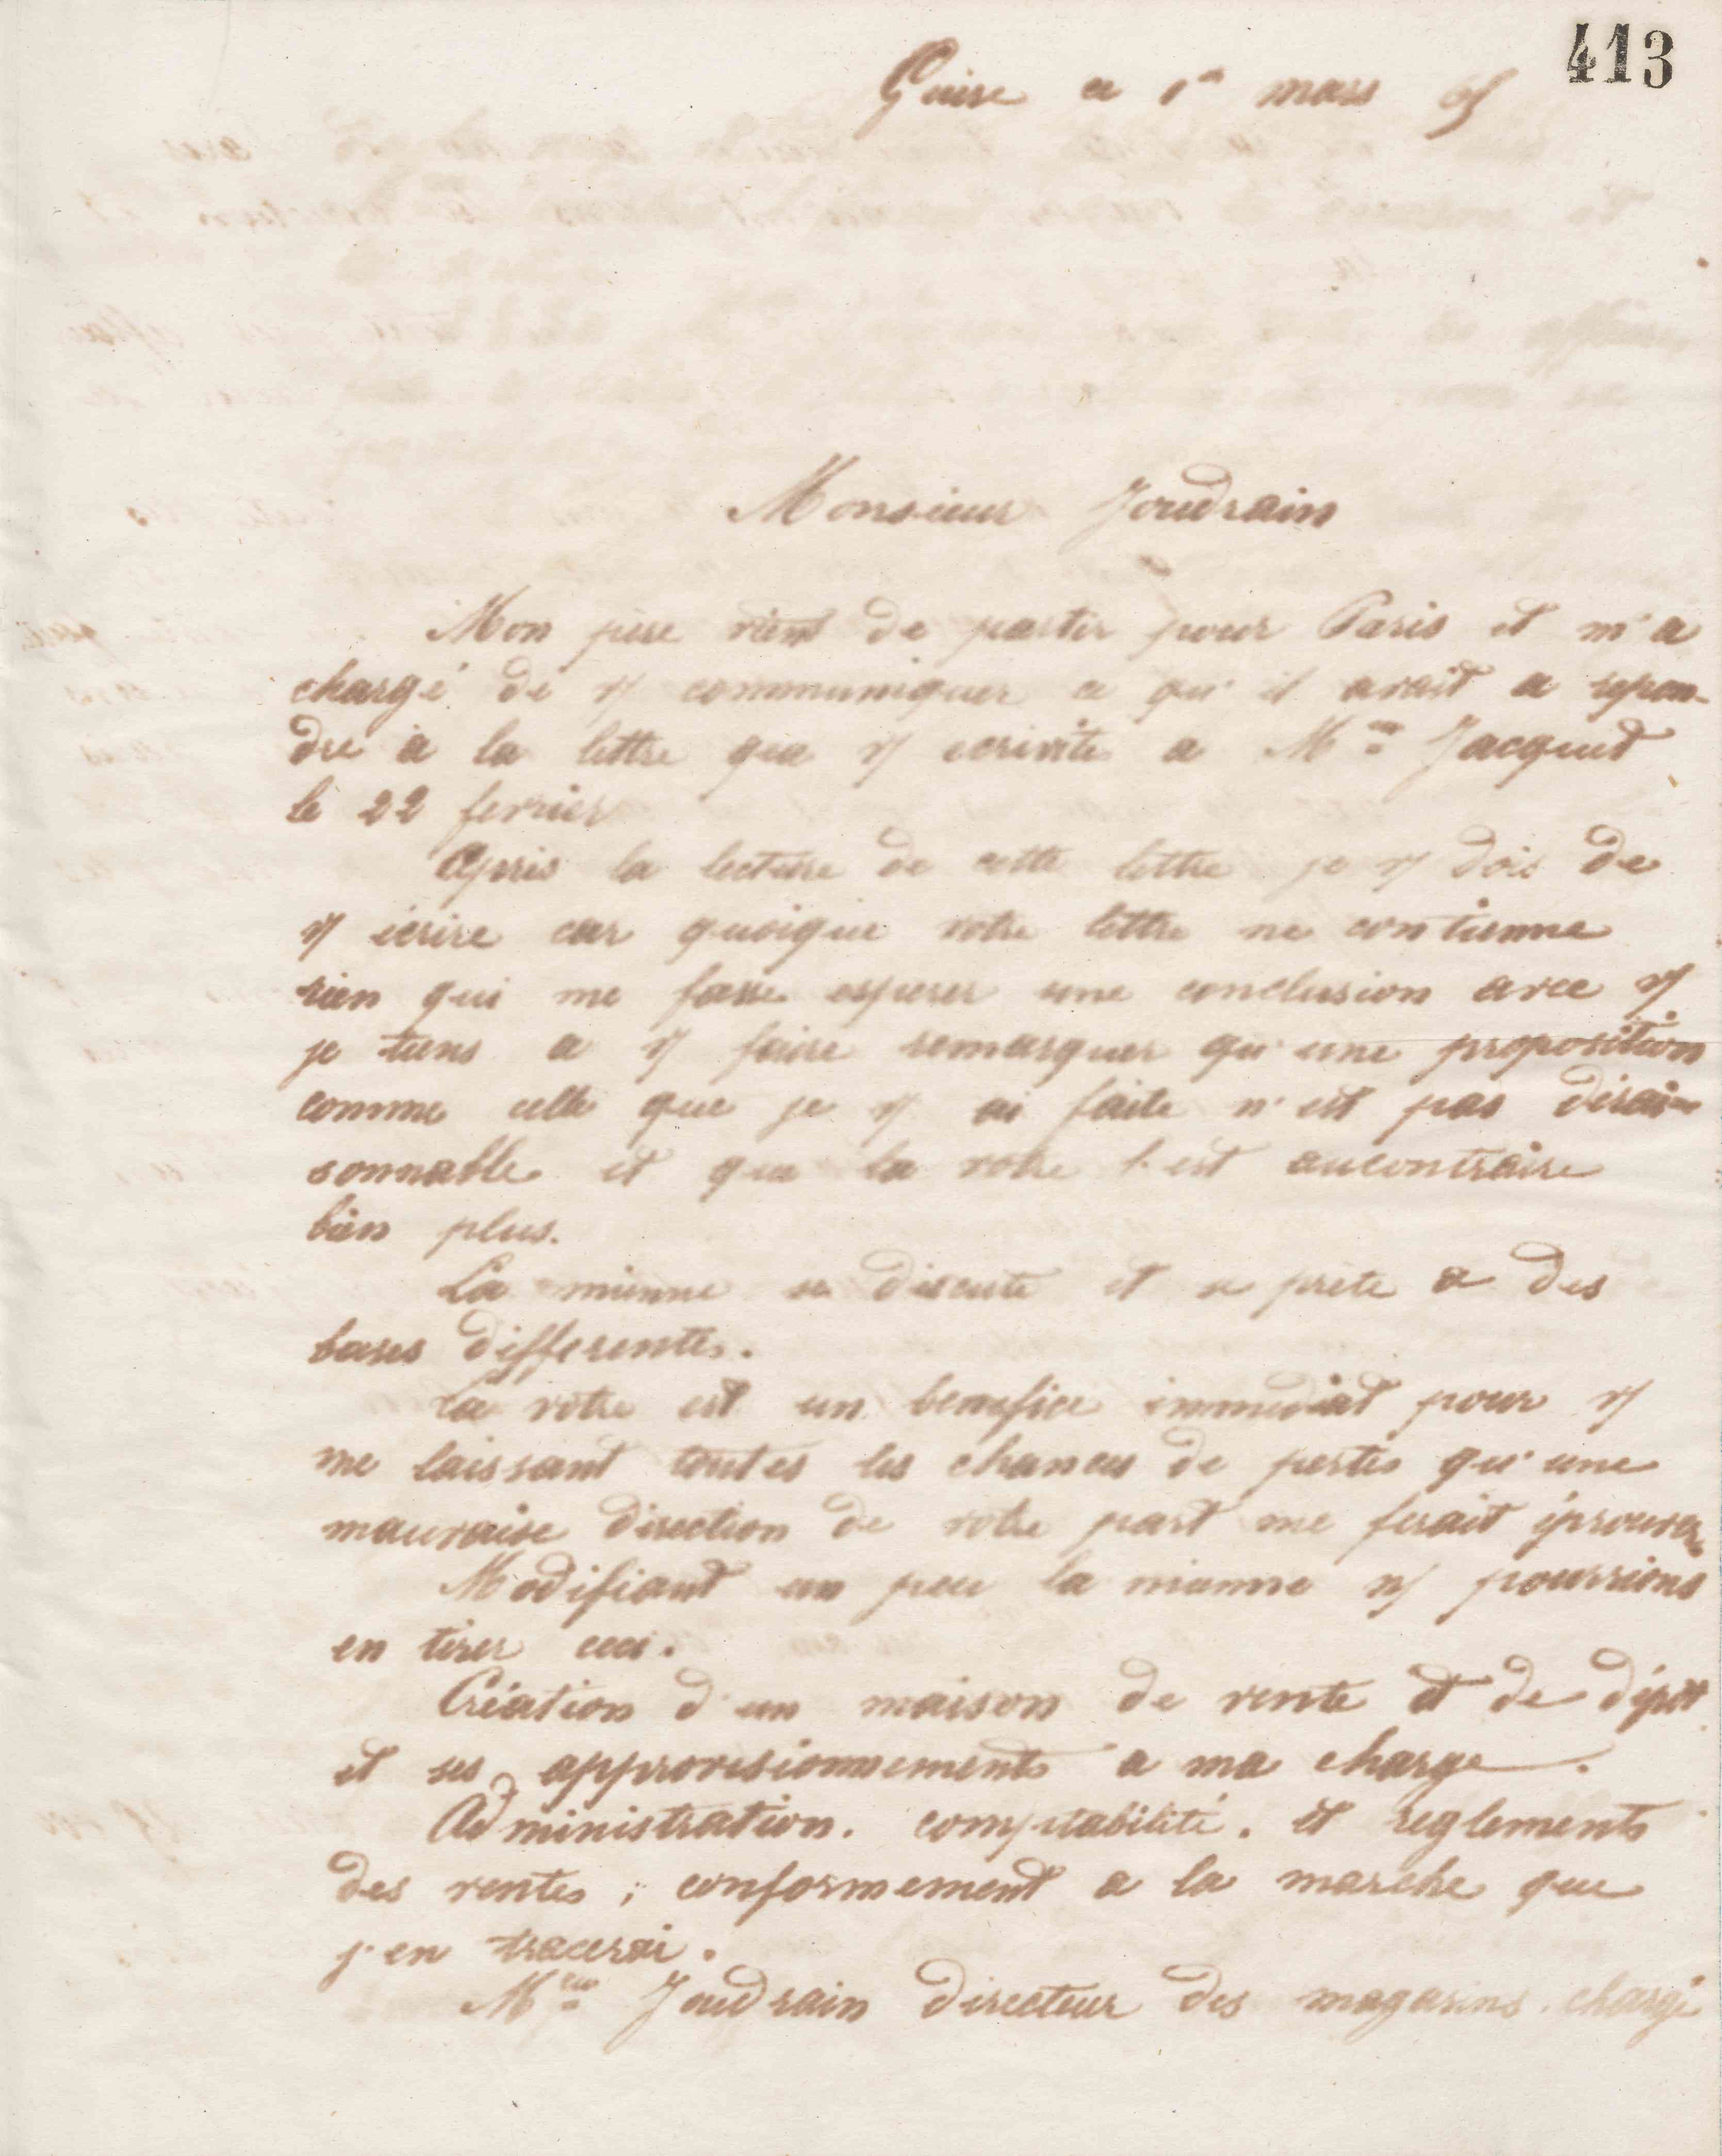 413
Guise ce 1er mars 65
Monsieur Joudrain
Mon père vient de partir pour Paris et m'a
chargé de v/ communiquer ce qu'il avait a repon-
dre à la lettre que v/ ecrivite a Mr Jacquet
le 22 fevrier
Après la lecture de cette lettre je v/ dois de
v/ écrire car quoique votre lettre ne contienne
rien qui me fasse esperer une conclusion avec v/
je tiens a v/ faire remarquer qu'une proposition
comme celle que je v/ ai faite n'est pas dérai-
sonnable et que la votre l'est aucontraire
bien plus.
La mienne se discute et se prète a des
bases differentes.
La votre est un benefice immediat pour v/
me laissant toutes les chances de pertes qu'une
mauvaise direction de votre part me ferait éprouver
Modifiant un peu la mienne n/ pourrions
en tirer ceci.
Création d'un maison de vente et de dépôt
et ses approvisionnements a ma charge.
Administration. comptabilité. et reglements
des ventes ; conformement a la marche que
j'en tracerai.
Mr Joudrain directeur des magasins chargé